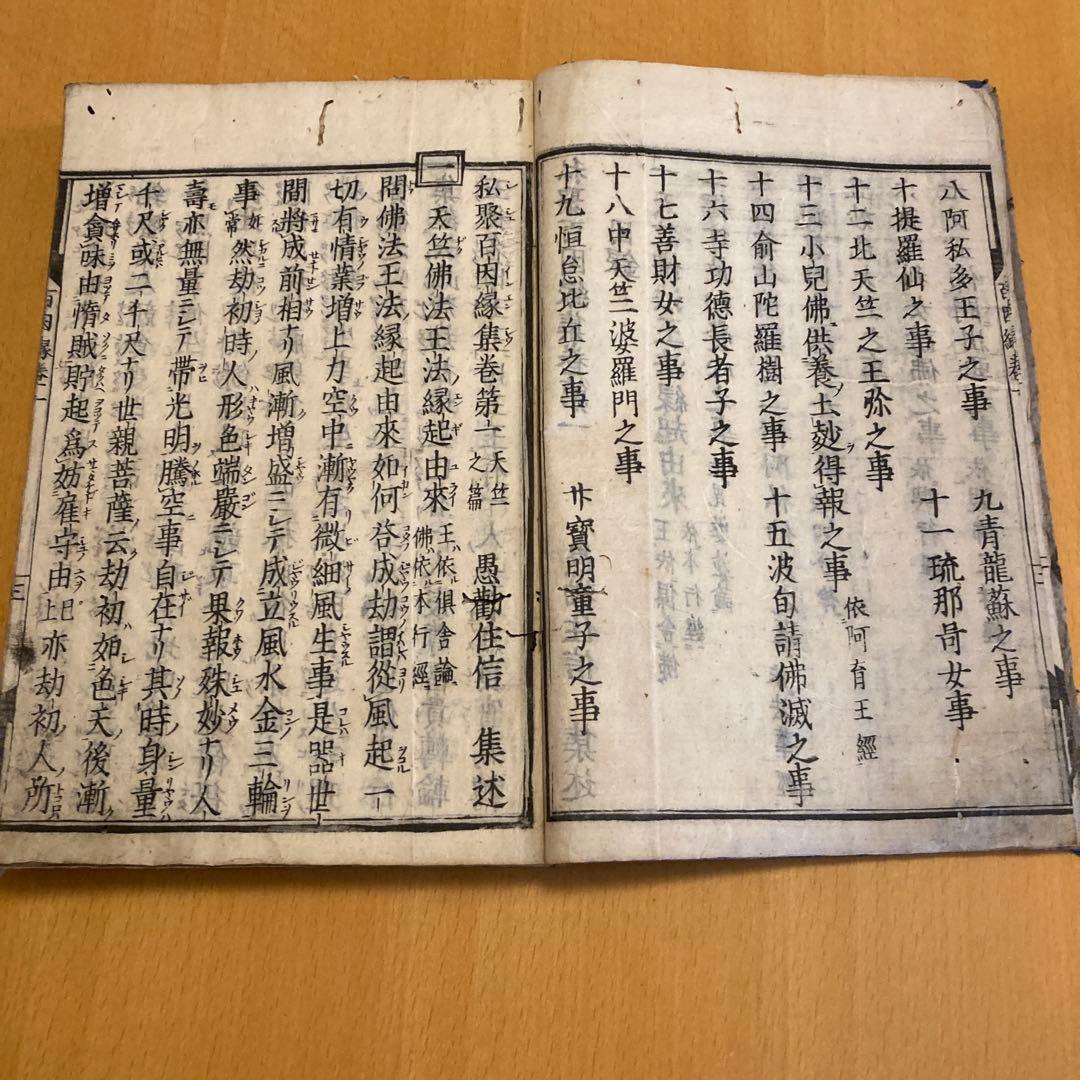 八阿私多王子之事　九青龍蘇之事
十提羅仙之事　十一琉那哥女事
十二北天竺之王弥之事
十三小兒佛供養ノ土麨ヲ得報之事 依阿育王經
十四俞山陀羅樹之事　十五波旬請佛滅之事
十六寺功德長者子之事
十七善財女之事
十八中天竺婆羅門之事
十九恒怠比丘之事　廿寳明童子之事
一
私聚百因緣集卷第一 天竺之篇　愚勸住信　集述
天竺佛法王法縁起由來 王ハ依俱舎論 佛ハ依本行經
問佛法王法縁起由來如何答成劫謂從風起一
切有情業增上力空中漸有微細風生事是器世
間將成前相ナリ風漸增盛ニシテ成立風水金三輪
事 然劫初時人形色端嚴ニシテ果報殊妙ナリ人
壽亦無量ニシテ帶光明騰空事自在ナリ其時身量
千尺或二千尺ナリ世親菩薩ノ云劫初ハ如色天後漸
增貪味由惰賊貯起爲妨雇守由 巳上 亦劫初人所
百因縁卷一
三